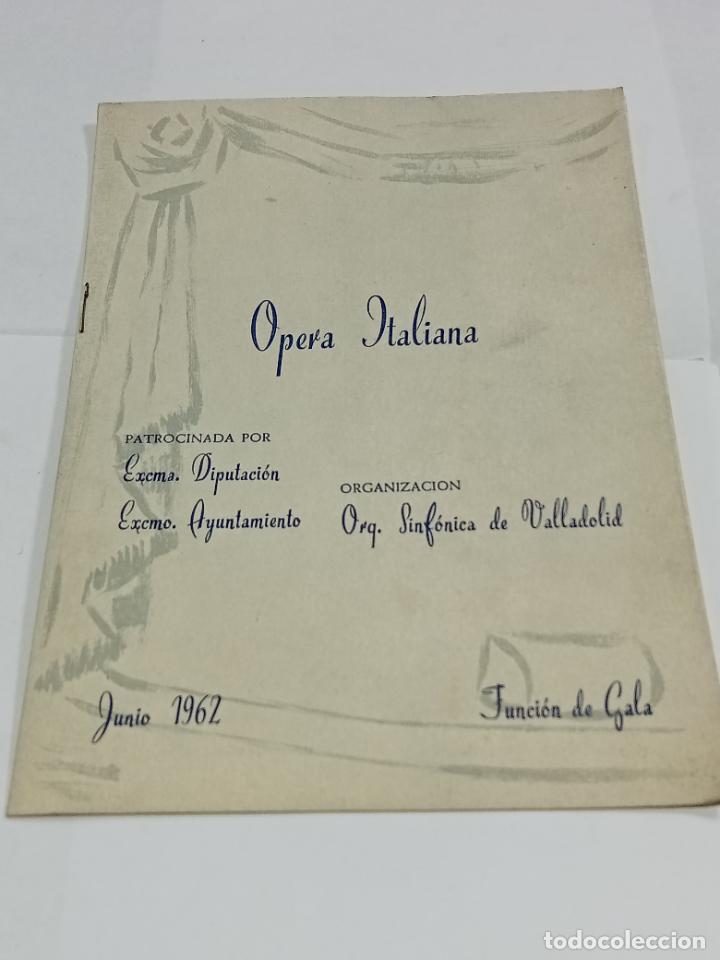 Opera Italiana
PATROCINADA POR
Excma. Diputación
Excmo. Ayuntamiento
ORGANIZACION
Orq. Sinfónica de Valladolid
Junio 1962
Función de Gala
todocoleccion
todocoleccion.net